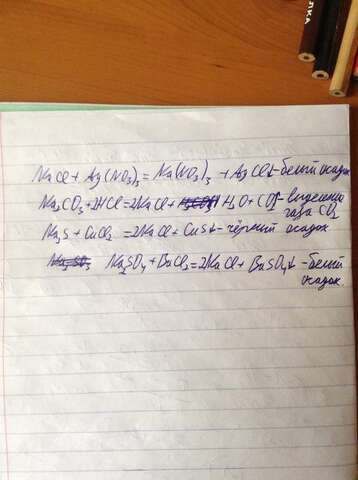 ЛКА
NaCl + Ag(NO3)3 = Na(NO3)3 + AgCl↓ - белый осадок
Na2CO3 + 2HCl = 2NaCl + H2O + CO2↑ - выделение
газа CO2
Na2S + CuCl2 = 2NaCl + CuS↓ - чёрный осадок
Na2SO4 + BaCl2 = 2NaCl + BaSO4↓ - белый
осадок